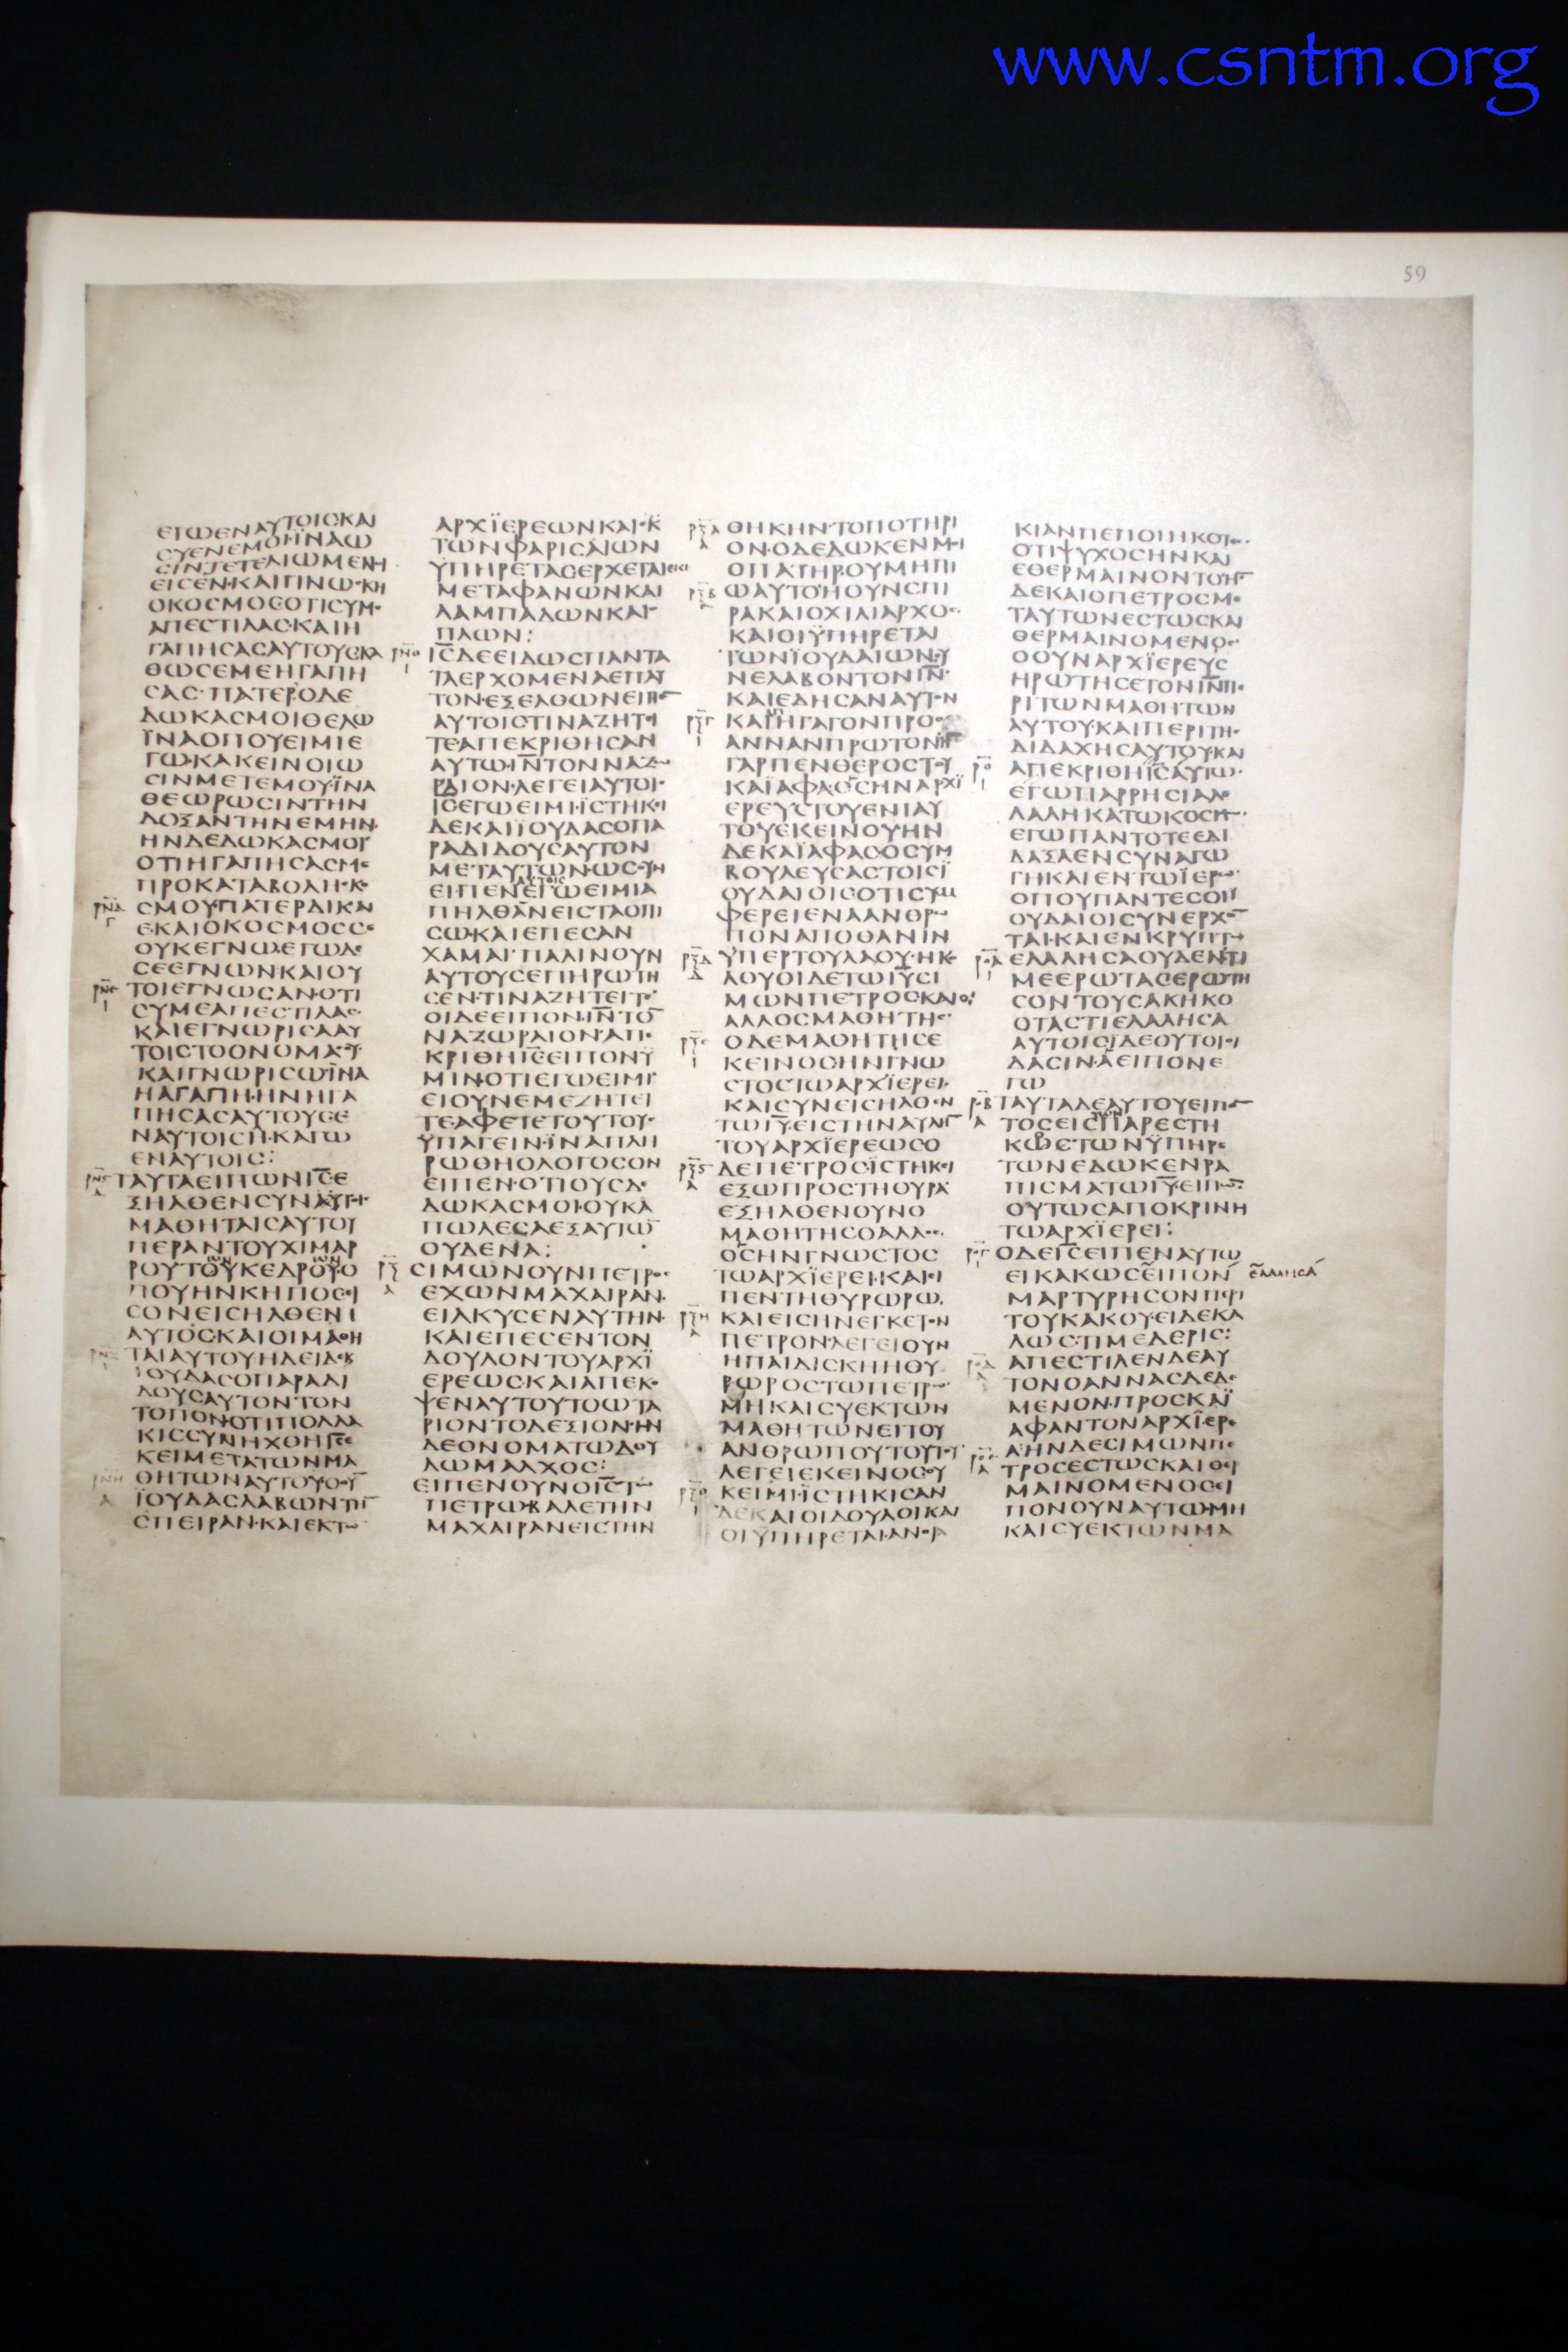 www.csntm.org
59
ΕΓΩΕΝΑΥΤΟΙΣΚΑΙ
ΣΥΕΝΕΜΟΙΪΝΑΩ
ΣΙΝΤΕΤΕΛΙΩΜΕΝΗ
ΕΙΣΕΝΚΑΙΓΙΝΩΣΚΗ
ΟΚΟΣΜΟΣΟΤΙΣΥΜΕ
ΑΠΕΣΤΙΛΑΣΚΑΙΗ
ΓΑΠΗΣΑΣΑΥΤΟΥΣΚΑ
ΘΩΣΕΜΕΗΓΑΠΗ
ΣΑΣ·ΠΑΤΕΡΟΔΕ
ΔΩΚΑΣΜΟΙΘΕΛΩ
ΪΝΑΟΠΟΥΕΙΜΙΕ
ΓΩΚΑΚΕΙΝΟΙΩ
ΣΙΝΜΕΤΕΜΟΥΪΝΑ
ΘΕΩΡΩΣΙΝΤΗΝ
ΔΟΞΑΝΤΗΝΕΜΗΝ
ΗΝΔΕΔΩΚΑΣΜΟΙ
ΟΤΙΗΓΑΠΗΣΑΣΜΕ
ΠΡΟΚΑΤΑΒΟΛΗΣΚΟ
ΣΜΟΥΠΑΤΕΡΔΙΚΑΙ
ΕΚΑΙΟΚΟΣΜΟΣΣΕ
ΟΥΚΕΓΝΩΕΓΩΔΕ
ΣΕΕΓΝΩΝΚΑΙΟΥ
ΤΟΙΕΓΝΩΣΑΝΟΤΙ
ΣΥΜΕΑΠΕΣΤΙΛΑΣ
ΚΑΙΕΓΝΩΡΙΣΑΑΥ
ΤΟΙΣΤΟΟΝΟΜΑΣΟΥ
ΚΑΙΓΝΩΡΙΣΩΪΝΑ
ΗΑΓΑΠΗΗΝΗΓΑ
ΠΗΣΑΣΑΥΤΟΥΣΕ
ΝΑΥΤΟΙΣΗΚΑΓΩ
ΕΝΑΥΤΟΙΣ:
ΤΑΥΤΑΕΙΠΩΝΙΣΕ
ΞΗΛΘΕΝΣΥΝΑΥΤΟΙ
ΜΑΘΗΤΑΙΣΑΥΤΟΥ
ΠΕΡΑΝΤΟΥΧΙΜΑΡ
ΡΟΥΤΟΥΚΕΔΡΟΥΟ
ΠΟΥΗΝΚΗΠΟΣΕΙ
ΣΟΝΕΙΣΗΛΘΕΝΙ
ΑΥΤΟΣΚΑΙΟΙΜΑΘΗ
ΤΑΙΑΥΤΟΥΗΔΕΙΔΕΚ
ΙΟΥΔΑΣΟΠΑΡΑΔΙ
ΔΟΥΣΑΥΤΟΝΤΟΝ
ΤΟΠΟΝΟΤΙΠΟΛΛΑ
ΚΙΣΣΥΝΗΧΘΗΙΣΕ
ΚΕΙΜΕΤΑΤΩΝΜΑ
ΘΗΤΩΝΑΥΤΟΥΟΟΥ
ΪΟΥΔΑΣΛΑΒΩΝΤΗ
ΣΠΕΙΡΑΝΚΑΙΕΚΤΩ
ΑΡΧΪΕΡΕΩΝΚΑΙΕΚ
ΤΩΝΦΑΡΙΣΑΙΩΝ
ΥΠΗΡΕΤΑΣΕΡΧΕΤΑΙΕΚΕΙ
ΜΕΤΑΦΑΝΩΝΚΑΙ
ΛΑΜΠΑΔΩΝΚΑΙΟ
ΠΛΩΝ:
ΙΣΔΕΕΙΔΩΣΠΑΝΤΑ
ΤΑΕΡΧΟΜΕΝΑΕΠΑΥ
ΤΟΝΕΞΕΛΘΩΝΕΙΠΕ
ΑΥΤΟΙΣΤΙΝΑΖΗΤΕΙ
ΤΕΑΠΕΚΡΙΘΗΣΑΝ
ΑΥΤΩΙΝΤΟΝΝΑΖΩ
ΡΑΙΟΝΛΕΓΕΙΑΥΤΟΙΣ
ΙΣΕΓΩΕΙΜΙΪΣΤΗΚΕΙ
ΔΕΚΑΙΪΟΥΔΑΣΟΠΑ
ΡΑΔΙΔΟΥΣΑΥΤΟΝ
ΜΕΤΑΥΤΩΝΩΣΟΥΝ
ΕΙΠΕΝΕΓΩΕΙΜΙΑ
ΠΗΛΘΑΝΕΙΣΤΑΟΠΙ
ΣΩΚΑΙΕΠΕΣΑΝ
ΧΑΜΑΙ·ΠΑΛΙΝΟΥΝ
ΑΥΤΟΥΣΕΠΗΡΩΤΗ
ΣΕΝΤΙΝΑΖΗΤΕΙΤΕ
ΟΙΔΕΕΙΠΟΝΙΝΤΟ
ΝΑΖΩΡΑΙΟΝΑΠΕ
ΚΡΙΘΗΙΣΕΙΠΟΝΫ
ΜΙΝΟΤΙΕΓΩΕΙΜΙ
ΕΙΟΥΝΕΜΕΖΗΤΕΙ
ΤΕΑΦΕΤΕΤΟΥΤΟΥΣ
ΫΠΑΓΕΙΝΪΝΑΠΛΗ
ΡΩΘΗΟΛΟΓΟΣΟΝ
ΕΙΠΕΝΟΤΙΟΥΣΔΕ
ΔΩΚΑΣΜΟΙΟΥΚΑ
ΠΩΛΕΣΑΕΞΑΥΤΩ
ΟΥΔΕΝΑ:
ΣΙΜΩΝΟΥΝΠΕΤΡΟΣ
ΕΧΩΝΜΑΧΑΙΡΑΝ
ΕΙΛΚΥΣΕΝΑΥΤΗΝ
ΚΑΙΕΠΕΣΕΝΤΟΝ
ΔΟΥΛΟΝΤΟΥΑΡΧΪ
ΕΡΕΩΣΚΑΙΑΠΕΚΟ
ΨΕΝΑΥΤΟΥΤΟΩΤΑ
ΡΙΟΝΤΟΔΕΞΙΟΝΗΝ
ΔΕΟΝΟΜΑΤΩΔΟΥ
ΛΩΜΑΛΧΟΣ:
ΕΙΠΕΝΟΥΝΟΙΣΤΩ
ΠΕΤΡΩΒΑΛΕΤΗΝ
ΜΑΧΑΙΡΑΝΕΙΣΤΗΝ
ΘΗΚΗΝΤΟΠΟΤΗΡΙ
ΟΝΟΔΕΔΩΚΕΝΜΟΙ
ΟΠΑΤΗΡΟΥΜΗΠΙ
ΩΑΥΤΟΗΟΥΝΣΠΙ
ΡΑΚΑΙΟΧΙΛΙΑΡΧΟΣ
ΚΑΙΟΙΫΠΗΡΕΤΑΙ
ΤΩΝΪΟΥΔΑΙΩΝΣΥ
ΝΕΛΑΒΟΝΤΟΝΙΝ
ΚΑΙΕΔΗΣΑΝΑΥΤΟΝ
ΚΑΙΗΓΑΓΟΝΠΡΟΣ
ΑΝΝΑΝΠΡΩΤΟΝΗ
ΓΑΡΠΕΝΘΕΡΟΣΤΟΥ
ΚΑΪΑΦΑΟΣΗΝΑΡΧΪ
ΕΡΕΥΣΤΟΥΕΝΙΑΥ
ΤΟΥΕΚΕΙΝΟΥΗΝ
ΔΕΚΑΪΑΦΑΣΟΣΥΜ
ΒΟΥΛΕΥΣΑΣΤΟΙΣΪ
ΟΥΔΑΙΟΙΣΟΤΙΣΥΜ
ΦΕΡΕΙΕΝΑΑΝΘΡΩ
ΠΟΝΑΠΟΘΑΝΙΝ
ΫΠΕΡΤΟΥΛΑΟΥΗΚΟ
ΛΟΥΘΙΔΕΤΩΙΥΣΙ
ΜΩΝΠΕΤΡΟΣΚΑΙΟ
ΑΛΛΟΣΜΑΘΗΤΗΣ
ΟΔΕΜΑΘΗΤΗΣΕ
ΚΕΙΝΟΣΗΝΓΝΩ
ΣΤΟΣΤΩΑΡΧΪΕΡΕΙ
ΚΑΙΣΥΝΕΙΣΗΛΘΕΝ
ΤΩΙΥΕΙΣΤΗΝΑΥΛΗ
ΤΟΥΑΡΧΪΕΡΕΩΣΟ
ΔΕΠΕΤΡΟΣΪΣΤΗΚΕΙ
ΕΞΩΠΡΟΣΤΗΘΥΡΑ
ΕΞΗΛΘΕΝΟΥΝΟ
ΜΑΘΗΤΗΣΟΑΛΛΟΣ
ΟΣΗΝΓΝΩΣΤΟΣ
ΤΩΑΡΧΪΕΡΕΙΚΑΙΕΙ
ΠΕΝΤΗΘΥΡΩΡΩ
ΚΑΙΕΙΣΗΝΕΓΚΕΤΟΝ
ΠΕΤΡΟΝΛΕΓΕΙΟΥΝ
ΗΠΑΙΔΙΣΚΗΗΘΥ
ΡΩΡΟΣΤΩΠΕΤΡΩ
ΜΗΚΑΙΣΥΕΚΤΩΝ
ΜΑΘΗΤΩΝΕΙΤΟΥ
ΑΝΘΡΩΠΟΥΤΟΥΤΟΥ
ΛΕΓΕΙΕΚΕΙΝΟΣΟΥ
ΚΕΙΜΙΪΣΤΗΚΙΣΑΝ
ΔΕΚΑΙΟΙΔΟΥΛΟΙΚΑΙ
ΟΙΫΠΗΡΕΤΑΙΑΝΘΡΑ
ΚΙΑΝΠΕΠΟΙΗΚΟΤΕΣ
ΟΤΙΨΥΧΟΣΗΝΚΑΙ
ΕΘΕΡΜΑΙΝΟΝΤΟΗ
ΔΕΚΑΙΟΠΕΤΡΟΣΜΕ
ΤΑΥΤΩΝΕΣΤΩΣΚΑΙ
ΘΕΡΜΑΙΝΟΜΕΝΟΣ
ΟΟΥΝΑΡΧΪΕΡΕΥΣ
ΗΡΩΤΗΣΕΤΟΝΙΝΠΕ
ΡΙΤΩΝΜΑΘΗΤΩΝ
ΑΥΤΟΥΚΑΙΠΕΡΙΤΗΣ
ΔΙΔΑΧΗΣΑΥΤΟΥΚΑΙ
ΑΠΕΚΡΙΘΗΙΣΑΥΤΩ
ΕΓΩΠΑΡΡΗΣΙΑΛΕ
ΛΑΛΗΚΑΤΩΚΟΣΜΩ
ΕΓΩΠΑΝΤΟΤΕΕΔΙ
ΔΑΞΑΕΝΣΥΝΑΓΩ
ΓΗΚΑΙΕΝΤΩΪΕΡΩ
ΟΠΟΥΠΑΝΤΕΣΟΙΪ
ΟΥΔΑΙΟΙΣΥΝΕΡΧΟ
ΤΑΙΚΑΙΕΝΚΡΥΠΤΩ
ΕΛΑΛΗΣΑΟΥΔΕΝΤΙ
ΜΕΕΡΩΤΑΣΕΡΩΤΗ
ΣΟΝΤΟΥΣΑΚΗΚΟ
ΟΤΑΣΤΙΕΛΑΛΗΣΑ
ΑΥΤΟΙΣΪΔΕΟΥΤΟΙΟΙ
ΔΑΣΙΝΑΕΙΠΟΝΕ
ΓΩ
ΤΑΥΤΑΔΕΑΥΤΟΥΕΙΠΟ
ΤΟΣΕΙΣΠΑΡΕΣΤΗ
ΚΩΣΤΩΝΫΠΗΡΕ
ΤΩΝΕΔΩΚΕΝΡΑ
ΠΙΣΜΑΤΩΙΥΕΙΠΩ
ΟΥΤΩΣΑΠΟΚΡΙΝΗ
ΤΩΑΡΧΪΕΡΕΙ:
ΟΔΕΙΣΕΙΠΕΝΑΥΤΩ
ΕΙΚΑΚΩΣΕΙΠΟΝ ΕΛΑΛΗΣΑ
ΜΑΡΤΥΡΗΣΟΝΠΕΡΙ
ΤΟΥΚΑΚΟΥΕΙΔΕΚΑ
ΛΩΣΤΙΜΕΔΕΡΙΣ:
ΑΠΕΣΤΙΛΕΝΔΕΑΥ
ΤΟΝΟΑΝΝΑΣΔΕΔΕ
ΜΕΝΟΝΠΡΟΣΚΑΪ
ΑΦΑΝΤΟΝΑΡΧΪΕΡΕ
ΑΗΝΔΕΣΙΜΩΝΠΕ
ΤΡΟΣΕΣΤΩΣΚΑΙΘΕΡ
ΜΑΙΝΟΜΕΝΟΣΕΙ
ΠΟΝΟΥΝΑΥΤΩΜΗ
ΚΑΙΣΥΕΚΤΩΝΜΑ